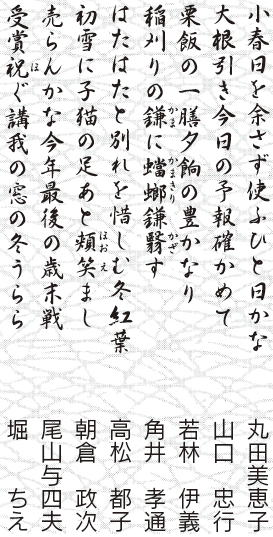 小春日を余さず使ふひと日かな
丸田美恵子
大根引き今日の予報確かめて
山口 忠行
栗飯の一膳夕餉の豊かなり
若林 伊義
稲刈りの鎌に蟷螂鎌翳す
かま かまきり かざ
角井 孝通
はたはたと別れを惜しむ冬紅葉
高松 都子
初雪に子猫の足あと頬笑まし
ほおえ
朝倉 政次
売らんかな今年最後の歳末戦
尾山与四夫
受賞祝ぐ講我の窓の冬うらら
ほ
堀 ちえ